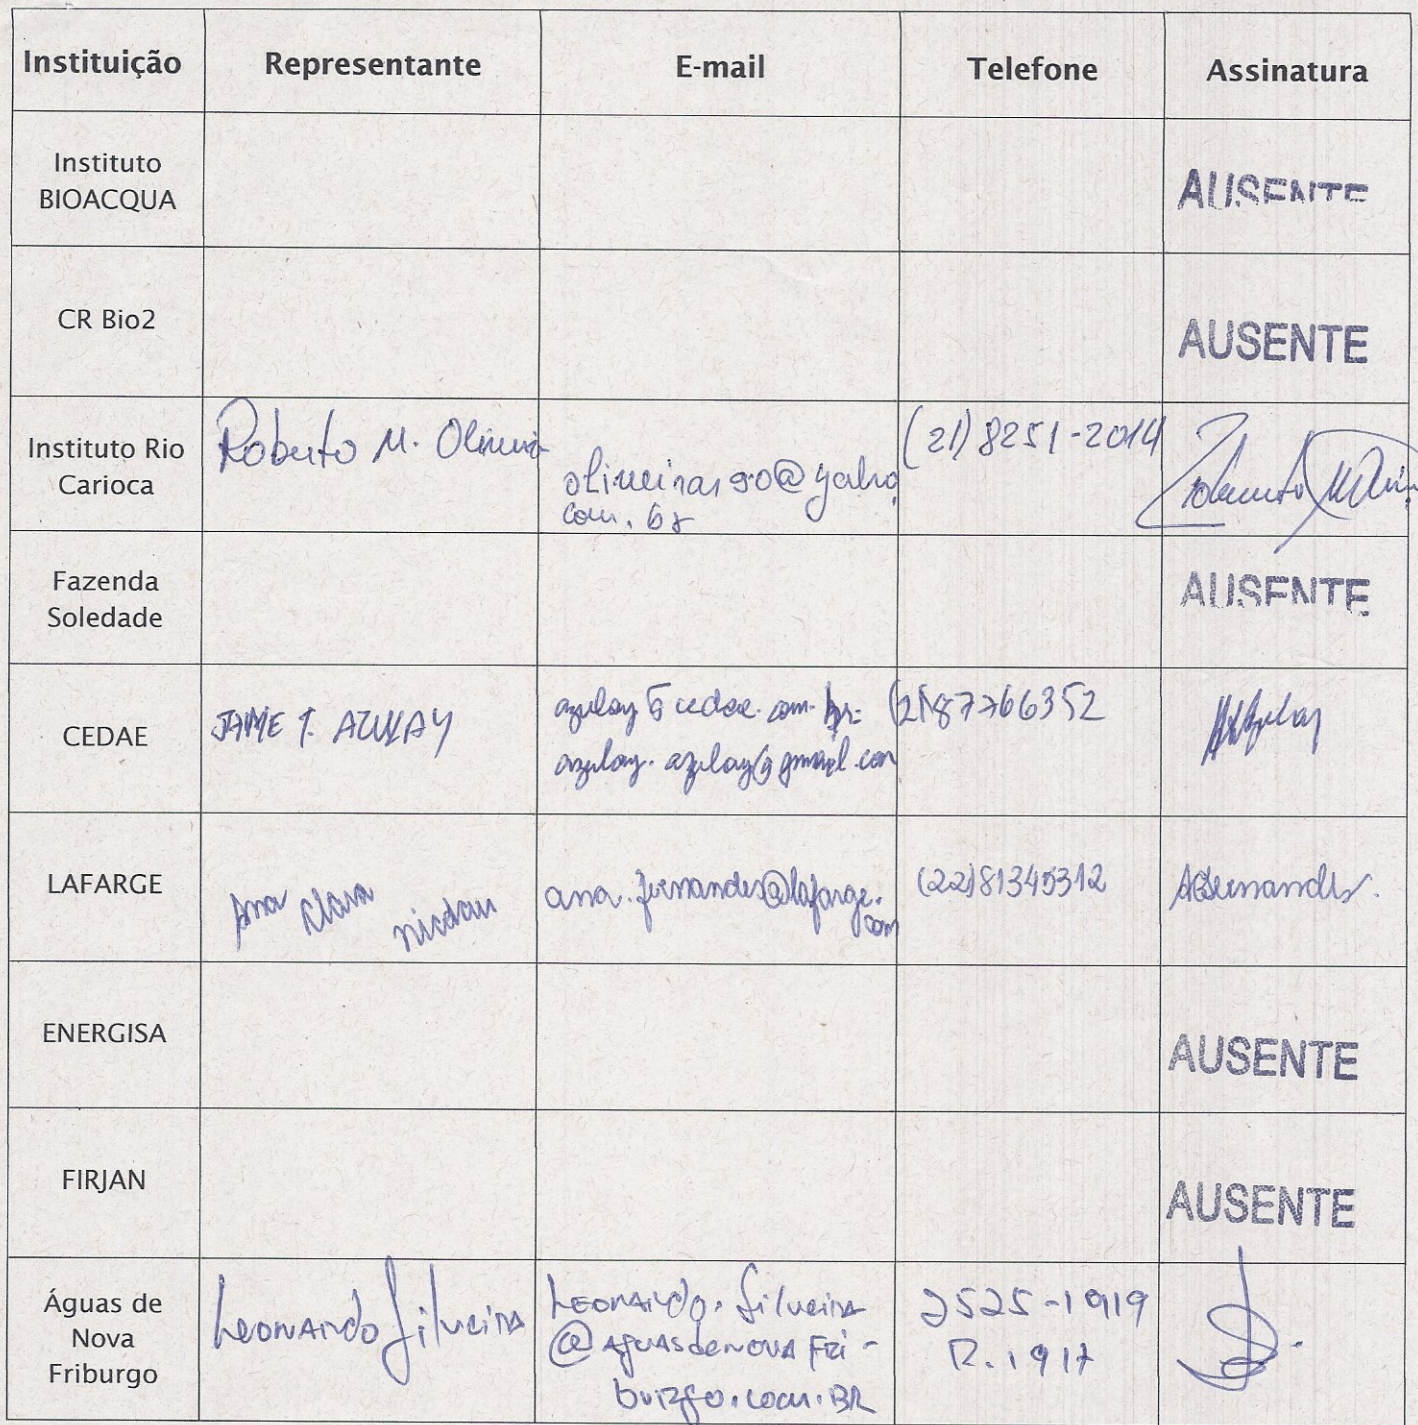 Instituição Representante E-mail Telefone Assinatura
Instituto
BIOACQUA
AUSENTE
CR Bio2
AUSENTE
Instituto Rio
Carioca
Roberto M. Oliveira
oliveiras90@yahoo
com.br
(21) 8251-2014
Fazenda
Soledade
AUSENTE
CEDAE
JAIME T. AZULAY
azulay@cedae.com.br
azulay.azulay@gmail.com
(21)87766352
LAFARGE
Ana Clara
ana.fernandes@lafarge.
com
(22)81345312
ENERGISA
AUSENTE
FIRJAN
AUSENTE
Águas de
Nova
Friburgo
Leonardo Silveira
Leonardo.Silveira
@AguasdeNOVAFRi-
buRgo.com.BR
2525-1919
R.1917